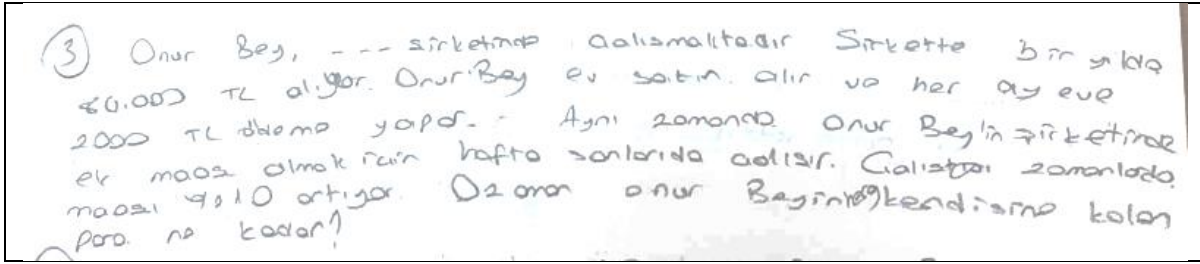 3 Onur Bey, --- şirketinde çalışmaktadır Şirkette bir yılda
80.000 TL alıyor. Onur Bey ev satın alır ve her ay eve
2000 TL ödeme yapar. Aynı zamanda Onur Bey'in şirketinde
ek maaş almak için hafta sonlarıda çalışır. Çalıştığı zamanlarda
maaşı %10 artıyor. O zaman onur Beyin kendisine kalan
para ne kadar?